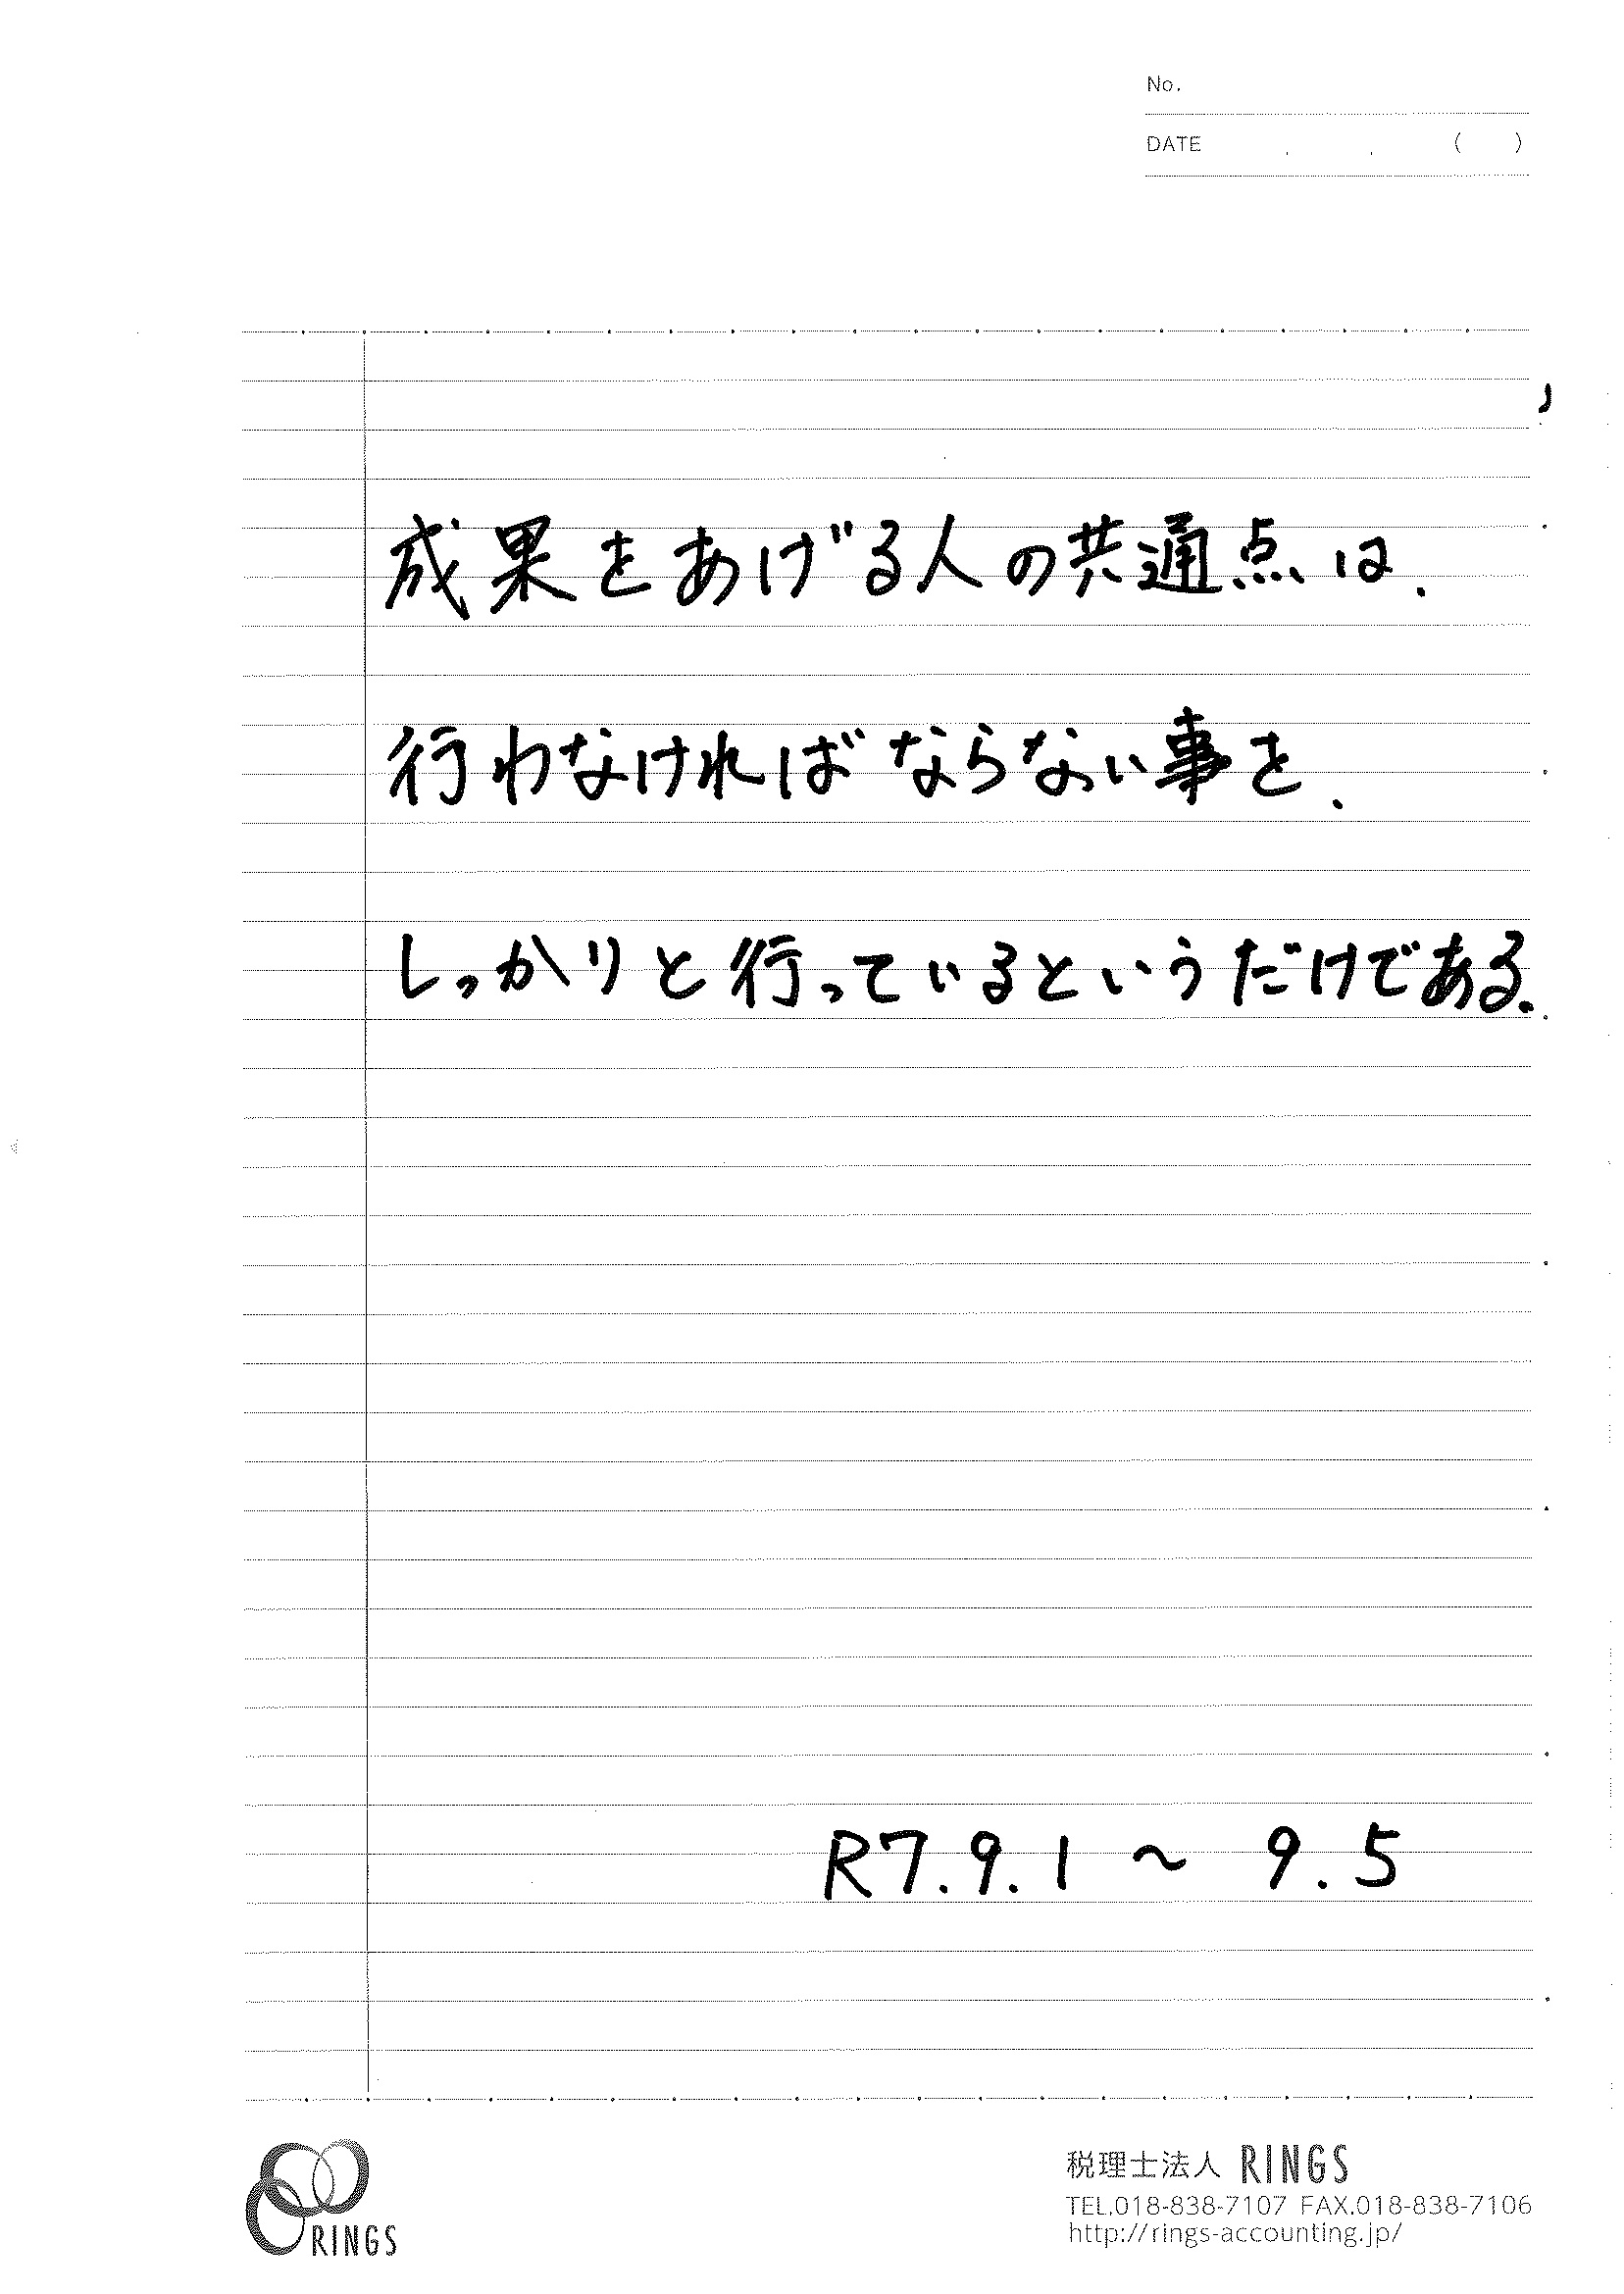 No.
DATE . . ( )
成果をあげる人の共通点は、
行わなければならない事を、
しっかりと行っているというだけである。
R7.9.1 ～ 9.5
RINGS
税理士法人 RINGS
TEL.018-838-7107 FAX.018-838-7106
http://rings-accounting.jp/